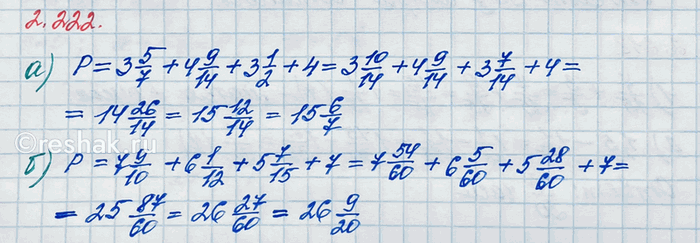 2.222.
а) P = 3 5/7 + 4 9/14 + 3 1/2 + 4 = 3 10/14 + 4 9/14 + 3 7/14 + 4 =
= 14 26/14 = 15 12/14 = 15 6/7
б) P = 7 9/10 + 6 1/12 + 5 7/15 + 7 = 7 54/60 + 6 5/60 + 5 28/60 + 7 =
= 25 87/60 = 26 27/60 = 26 9/20
reshak.ru